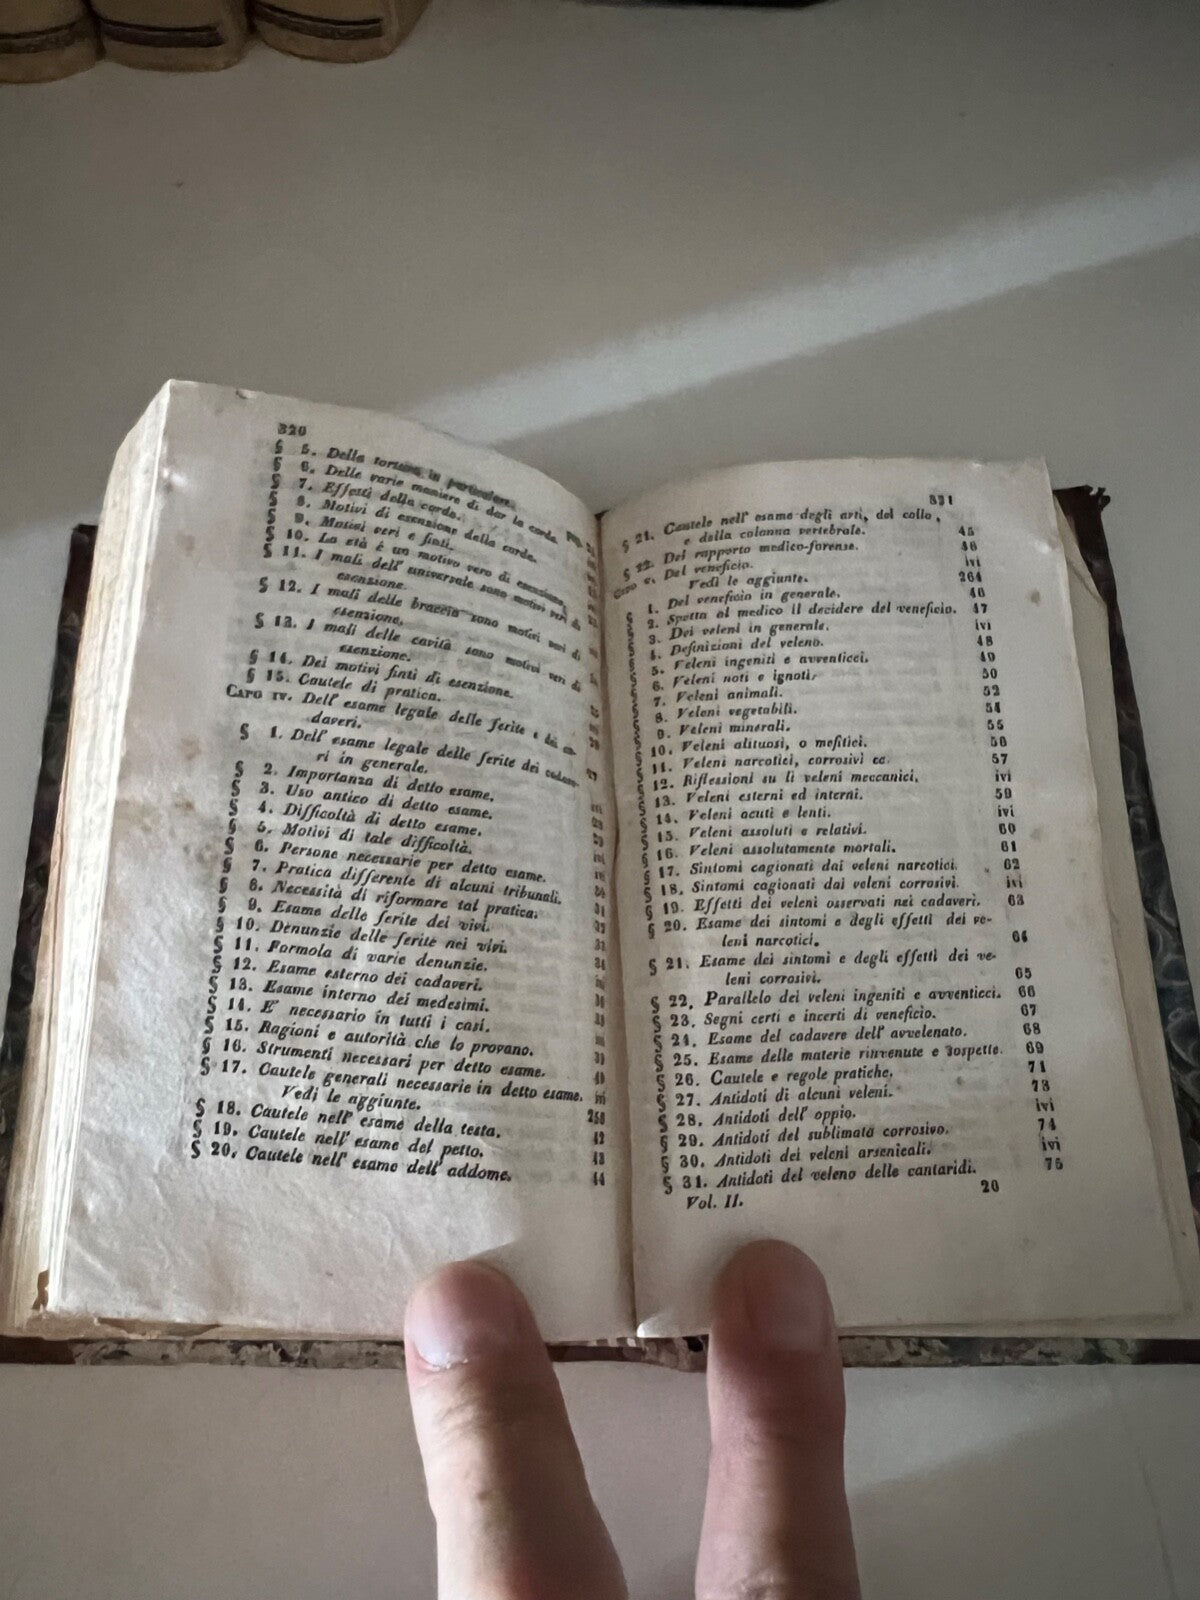 320
§ 5. Della tortura in particolare.
§ 6. Delle varie maniere di dar la corda.
§ 7. Effetti della corda.
§ 8. Motivi di esenzione della corda.
§ 9. Motivi veri e finti.
§ 10. La età è un motivo vero di esenzione.
§ 11. I mali dell' universale sono motivi veri di
esenzione.
§ 12. I mali delle braccia sono motivi veri di
esenzione.
§ 13. I mali delle cavità sono motivi veri di
esenzione.
§ 14. Dei motivi finti di esenzione.
§ 15. Cautele di pratica.
CAPO IV. Dell' esame legale delle ferite e dei ca-
daveri.
§ 1. Dell' esame legale delle ferite dei cadave-
ri in generale. 27
§ 2. Importanza di detto esame.
§ 3. Uso antico di detto esame.
§ 4. Difficoltà di detto esame.
§ 5. Motivi di tale difficoltà.
§ 6. Persone necessarie per detto esame.
§ 7. Pratica differente di alcuni tribunali.
§ 8. Necessità di riformare tal pratica.
§ 9. Esame delle ferite dei vivi.
§ 10. Denunzie delle ferite nei vivi.
§ 11. Formola di varie denunzie.
§ 12. Esame esterno dei cadaveri.
§ 13. Esame interno dei medesimi.
§ 14. E' necessario in tutti i casi.
§ 15. Ragioni e autorità che lo provano.
§ 16. Strumenti necessari per detto esame.
§ 17. Cautele generali necessarie in detto esame. ivi
Vedi le aggiunte. 258
§ 18. Cautele nell' esame della testa. 42
§ 19. Cautele nell' esame del petto. 43
§ 20. Cautele nell' esame dell' addome. 44
321
§ 21. Cautele nell' esame degli arti, del collo,
e della colonna vertebrale. 45
§ 22. Del rapporto medico-forense. 46
CAPO V. Del veneficio. ivi
Vedi le aggiunte. 264
§ 1. Del veneficio in generale. 46
§ 2. Spetta al medico il decidere del veneficio. 47
§ 3. Dei veleni in generale. ivi
§ 4. Definizioni del veleno. 48
§ 5. Veleni ingeniti e avventicci. 49
§ 6. Veleni noti e ignoti. 50
§ 7. Veleni animali. 52
§ 8. Veleni vegetabili. 54
§ 9. Veleni minerali. 55
§ 10. Veleni alituosi, o mefitici. 56
§ 11. Veleni narcotici, corrosivi ec. 57
§ 12. Riflessioni su li veleni meccanici. ivi
§ 13. Veleni esterni ed interni. 59
§ 14. Veleni acuti e lenti. ivi
§ 15. Veleni assoluti e relativi. 60
§ 16. Veleni assolutamente mortali. 61
§ 17. Sintomi cagionati dai veleni narcotici. 62
§ 18. Sintomi cagionati dai veleni corrosivi. ivi
§ 19. Effetti dei veleni osservati nei cadaveri. 63
§ 20. Esame dei sintomi e degli effetti dei ve-
leni narcotici. 64
§ 21. Esame dei sintomi e degli effetti dei ve-
leni corrosivi. 65
§ 22. Parallelo dei veleni ingeniti e avventicci. 66
§ 23. Segni certi e incerti di veneficio. 67
§ 24. Esame del cadavere dell' avvelenato. 68
§ 25. Esame delle materie rinvenute e sospette. 69
§ 26. Cautele e regole pratiche. 71
§ 27. Antidoti di alcuni veleni. 73
§ 28. Antidoti dell' oppio. ivi
§ 29. Antidoti del sublimato corrosivo. 74
§ 30. Antidoti dei veleni arsenicali. ivi
§ 31. Antidoti del veleno delle cantaridi. 75
Vol. II. 20